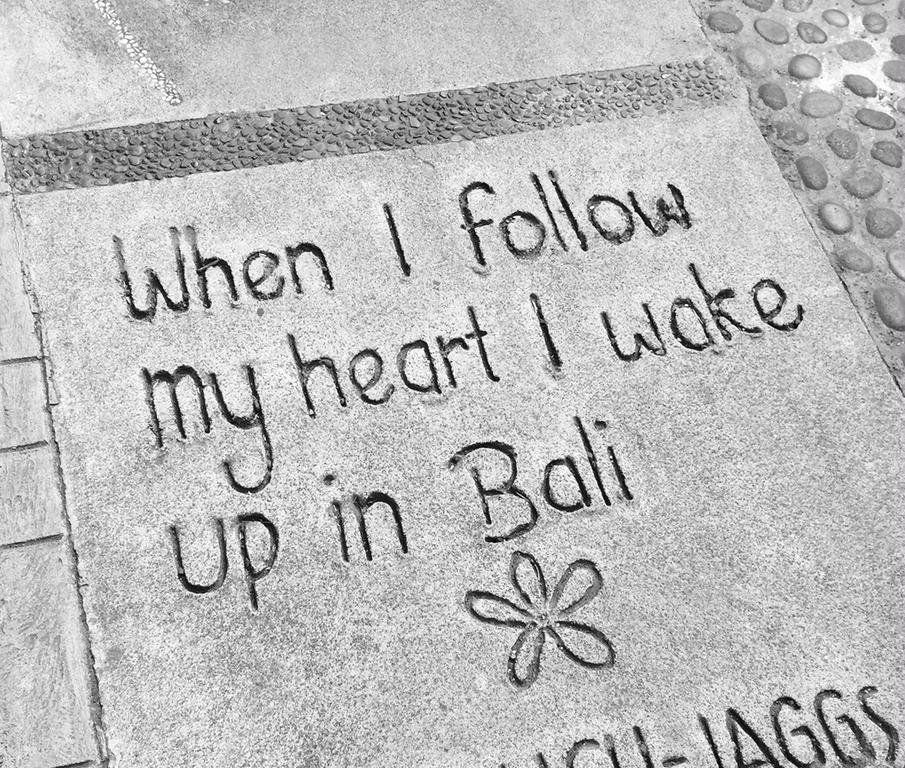 When I follow
my heart I wake
up in Bali